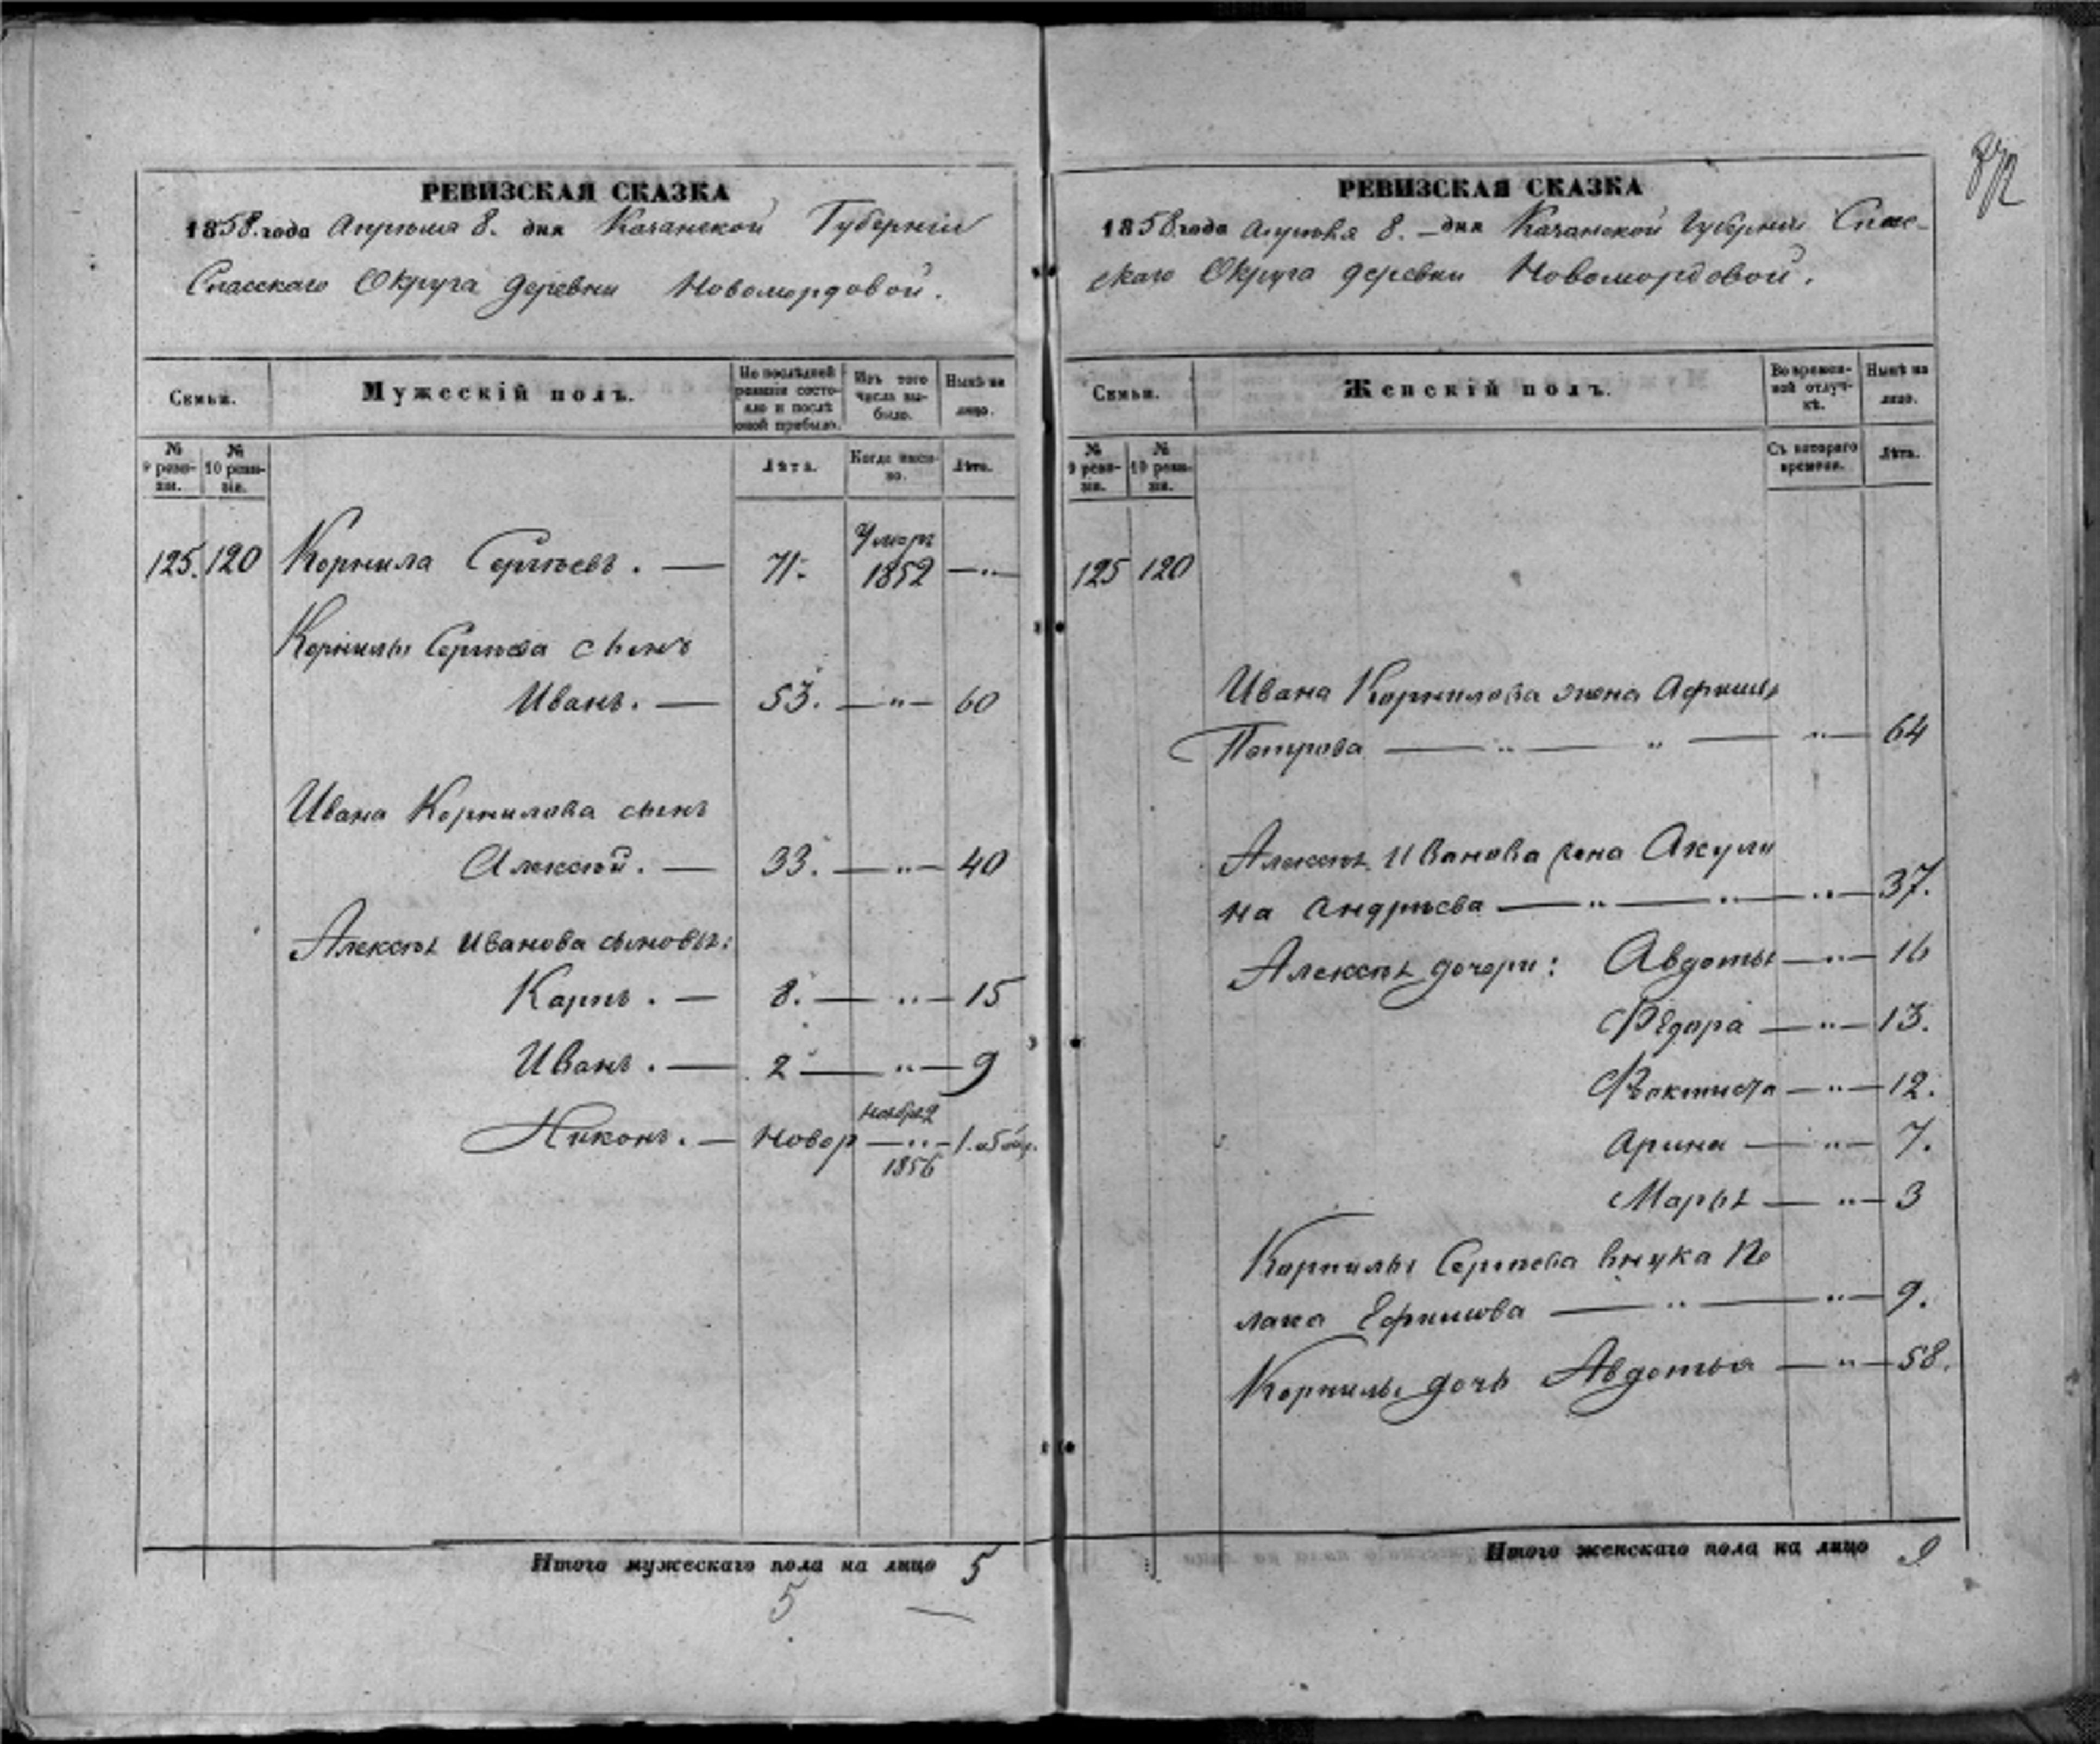 РЕВИЗСКАЯ СКАЗКА
1858. года Апрѣля 8. дня Казанской Губерніи
Спасскаго Округа деревни Новомордовой.
Семьи.
Мужескій полъ.
По послѣдней ревизіи состояло и послѣ оной прибыло.
Изъ того числа выбыло.
Нынѣ на лицо.
№ 9 ревизіи.
№ 10 ревизіи.
Лѣта.
Когда именно.
Лѣта.
125. 120 Корнила Сергѣевъ. — 71. Умеръ 1852 — „ —
Корнилы Сергѣева сынъ
Иванъ. — 53. — „ — 60
Ивана Корнилова сынъ
Алексѣй. — 33. — „ — 40
Алексѣя Иванова сыновья:
Карпъ. — 8. — „ — 15
Иванъ. — 2 — „ — 9
Никонъ. — Новор — „ — 1856 1.
Итого мужескаго пола на лицо 5
5
872
РЕВИЗСКАЯ СКАЗКА
1858 года Апрѣля 8. — дня Казанской Губерніи Спас-
скаго Округа деревни Новомордовой.
Семьи.
Женскій полъ.
Во временной отлучкѣ.
Нынѣ на лицо.
№ 9 ревизіи.
№ 10 ревизіи.
Съ котораго времени.
Лѣта.
125 120
Ивана Корнилова жена
Петрова — „ — „ — „ — 64
Алексѣя Иванова жена Акули
на Андрѣева — „ — „ — „ — 37.
Алексѣя дочери: Авдотья — „ — 16
Ѳедора — „ — 13.
Ѳектиста — „ — 12.
Арина — „ — 7.
Марья — „ — 3
Корнилы Сергѣева внука Пе
лагея Ефимова — „ — „ — 9.
Корнилы дочь Авдотья — „ — 58.
Итого женскаго пола на лицо 9